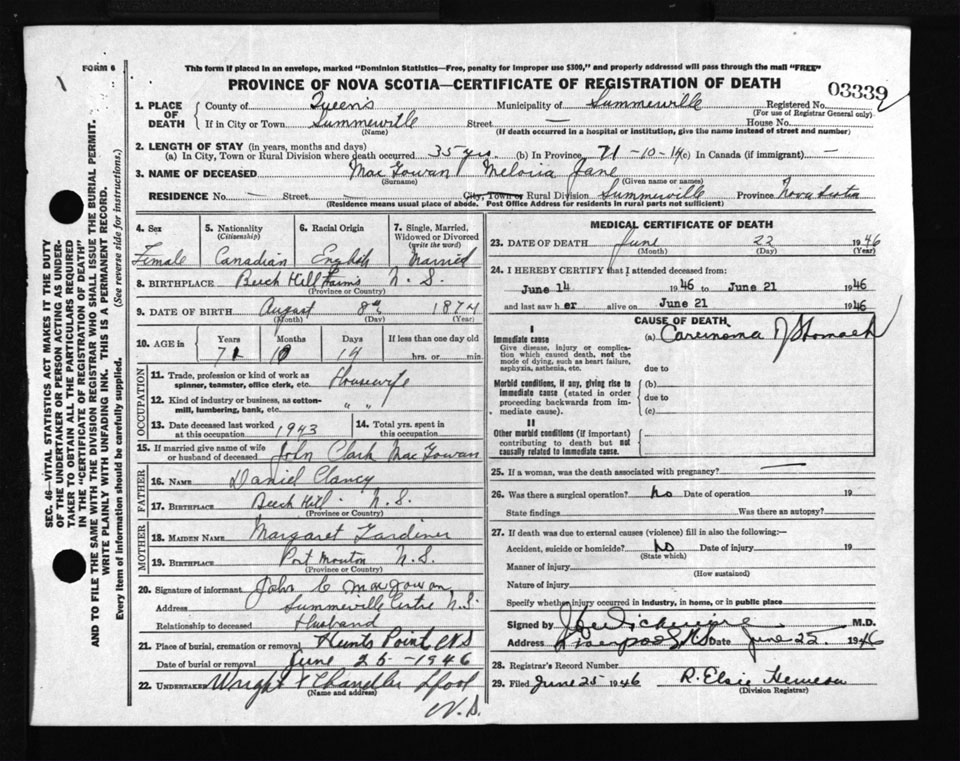 FORM 6
This form if placed in an envelope, marked "Dominion Statistics—Free, penalty for improper use $300," and properly addressed will pass through the mail "FREE"
PROVINCE OF NOVA SCOTIA—CERTIFICATE OF REGISTRATION OF DEATH
03339
1. PLACE OF DEATH County of Queens Municipality of Summerville Registered No.
(For use of Registrar General only)
If in City or Town Summerville Street — House No.
(Name) (If death occurred in a hospital or institution, give the name instead of street and number)
2. LENGTH OF STAY (in years, months and days)
(a) In City, Town or Rural Division where death occurred 35 yrs. (b) In Province 71-10-14 (c) In Canada (if immigrant) —
3. NAME OF DECEASED MacGowan Jane
(Surname) (Given name or names)
RESIDENCE No. — Street — City, Town or Rural Division Summerville Province Nova Scotia
(Residence means usual place of abode. Post Office Address for residents in rural parts not sufficient)
4. Sex
Female
5. Nationality
(Citizenship)
Canadian
6. Racial Origin
English
7. Single, Married, Widowed or Divorced
(write the word)
Married
8. BIRTHPLACE Beech Hill Farms N.S.
(Province or Country)
9. DATE OF BIRTH August 8th 1874
(Month) (Day) (Year)
10. AGE in Years Months Days If less than one day old
71 10 14 hrs. or min.
OCCUPATION
11. Trade, profession or kind of work as spinner, teamster, office clerk, etc. Housewife
12. Kind of industry or business, as cotton-mill, lumbering, bank, etc. " "
13. Date deceased last worked at this occupation 1943
14. Total yrs. spent in this occupation
15. If married give name of wife or husband of deceased John Clark MacGowan
FATHER
16. Name Daniel Clancy
17. Birthplace Beech Hill N.S.
(Province or Country)
MOTHER
18. MAIDEN NAME Margaret Gardiner
19. BIRTHPLACE Port Mouton N.S.
(Province or Country)
20. Signature of informant John C MacGowan
Address Summerville Centre N.S.
Relationship to deceased Husband
21. Place of burial, cremation or removal Hunts Point NS
Date of burial or removal June 25-1946
22. UNDERTAKER Wright & Chandler L'pool
(Name and address)
N.S.
MEDICAL CERTIFICATE OF DEATH
23. DATE OF DEATH June 22 1946
(Month) (Day) (Year)
24. I HEREBY CERTIFY that I attended deceased from:
June 14 1946 to June 21 1946
and last saw her alive on June 21 1946
CAUSE OF DEATH
I
Immediate cause (a) Carcinoma of Stomach
Give disease, injury or complication which caused death, not the mode of dying, such as heart failure, asphyxia, asthenia, etc.
due to
Morbid conditions, if any, giving rise to immediate cause (stated in order proceeding backwards from immediate cause).
(b)
due to
(c)
II
Other morbid conditions (if important) contributing to death but not causally related to immediate cause.
25. If a woman, was the death associated with pregnancy? —
26. Was there a surgical operation? No Date of operation 19
State findings Was there an autopsy?
27. If death was due to external causes (violence) fill in also the following:—
Accident, suicide or homicide? No Date of injury 19
(State which)
Manner of injury
(How sustained)
Nature of injury
Specify whether injury occurred in industry, in home, or in public place
Signed by M.D.
Address Liverpool, N.S. Date June 25 1946
28. Registrar's Record Number
29. Filed June 25 1946 R. Elsie
(Division Registrar)
SEC. 46—VITAL STATISTICS ACT MAKES IT THE DUTY OF THE UNDERTAKER OR PERSON ACTING AS UNDERTAKER TO OBTAIN ALL THE PARTICULARS REQUIRED IN THE "CERTIFICATE OF REGISTRATION OF DEATH" AND TO FILE THE SAME WITH THE DIVISION REGISTRAR WHO SHALL ISSUE THE BURIAL PERMIT.
WRITE PLAINLY WITH UNFADING INK. THIS IS A PERMANENT RECORD.
Every item of information should be carefully supplied. (See reverse side for instructions.)